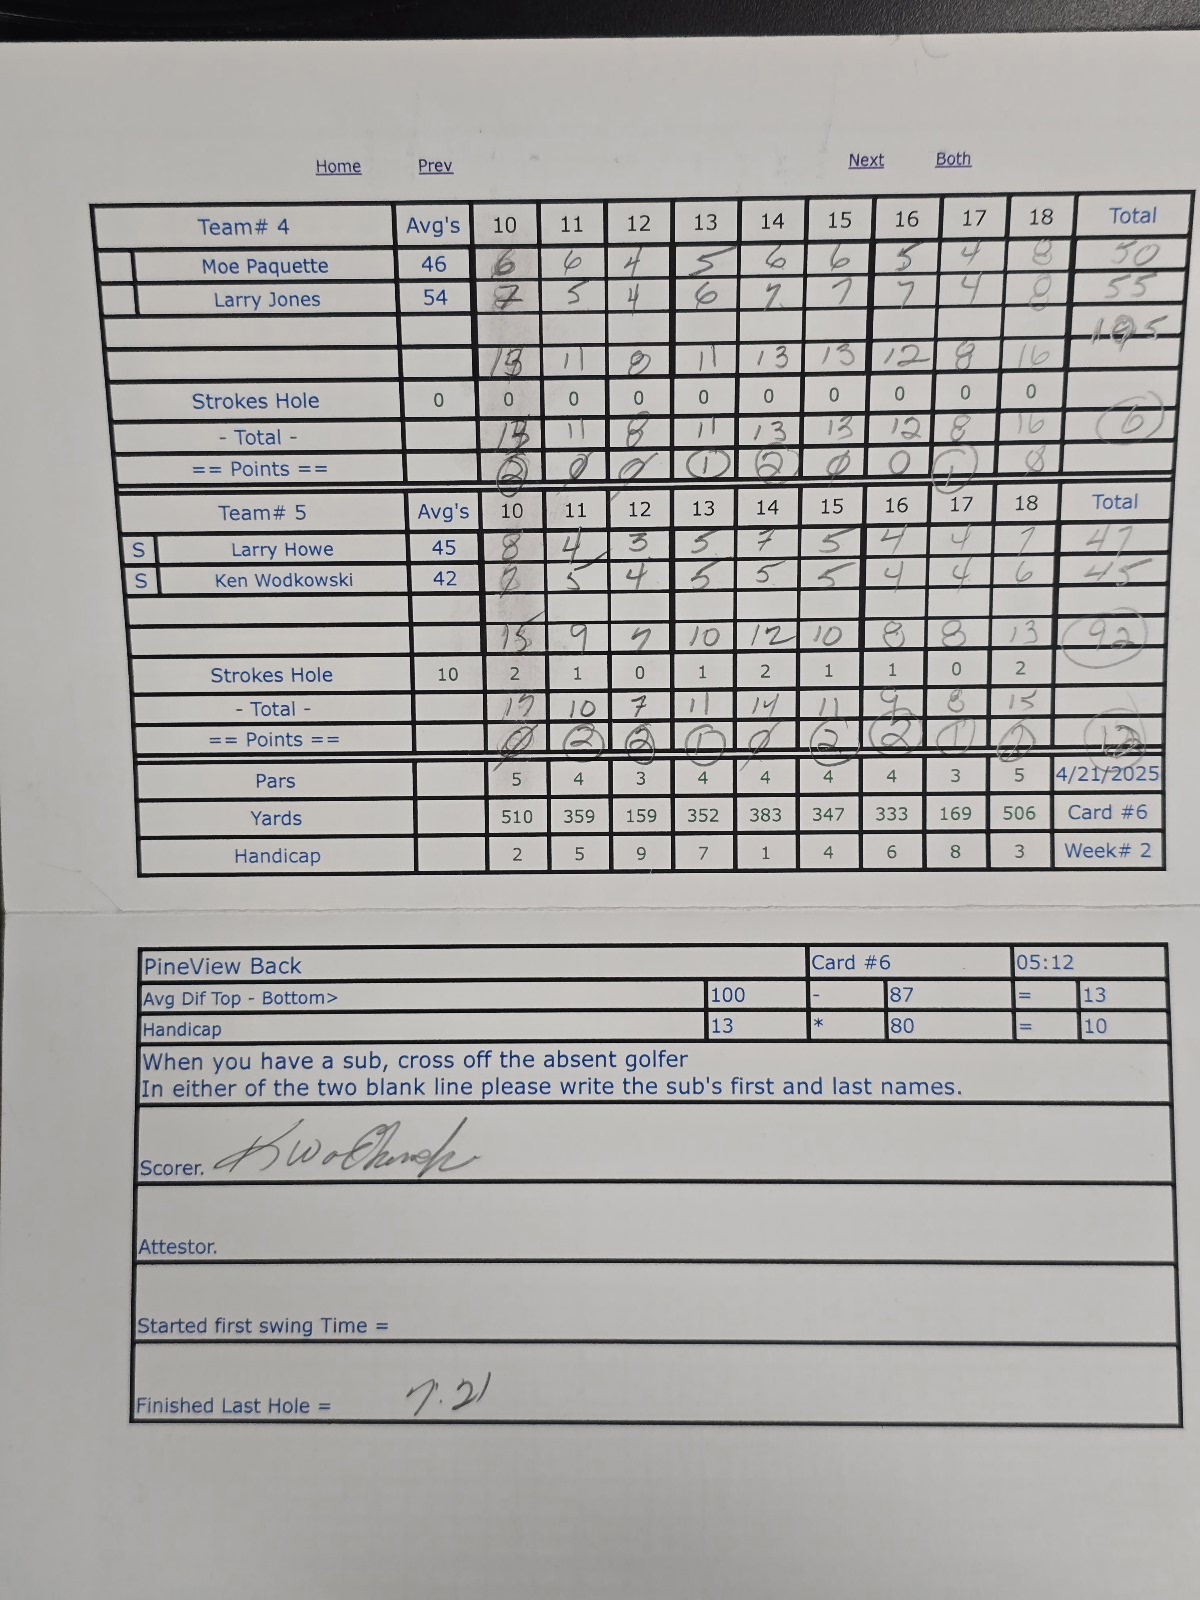 Home Prev Next Both
Team# 4 Avg's 10 11 12 13 14 15 16 17 18 Total
Moe Paquette 46 6 6 4 5 6 6 5 4 8 50
Larry Jones 54 7 5 4 6 7 7 7 4 8 55
13 11 8 11 13 13 12 8 16
Strokes Hole 0 0 0 0 0 0 0 0 0 0
- Total - 13 11 8 11 13 13 12 8 16 6
== Points == 2 0 0 1 2 0 0 1 0
Team# 5 Avg's 10 11 12 13 14 15 16 17 18 Total
S Larry Howe 45 8 4 3 5 7 5 4 4 7 47
S Ken Wodkowski 42 5 4 5 5 5 4 4 6 45
15 9 7 10 12 10 8 8 13 92
Strokes Hole 10 2 1 0 1 2 1 1 0 2
- Total - 17 10 7 11 14 11 9 8 15
== Points == 0 2 2 1 0 2 2 1 2 12
Pars 5 4 3 4 4 4 4 3 5 4/21/2025
Yards 510 359 159 352 383 347 333 169 506 Card #6
Handicap 2 5 9 7 1 4 6 8 3 Week# 2
PineView Back Card #6 05:12
Avg Dif Top - Bottom> 100 - 87 = 13
Handicap 13 * 80 = 10
When you have a sub, cross off the absent golfer
In either of the two blank line please write the sub's first and last names.
Scorer.
Attestor.
Started first swing Time =
Finished Last Hole = 7.21